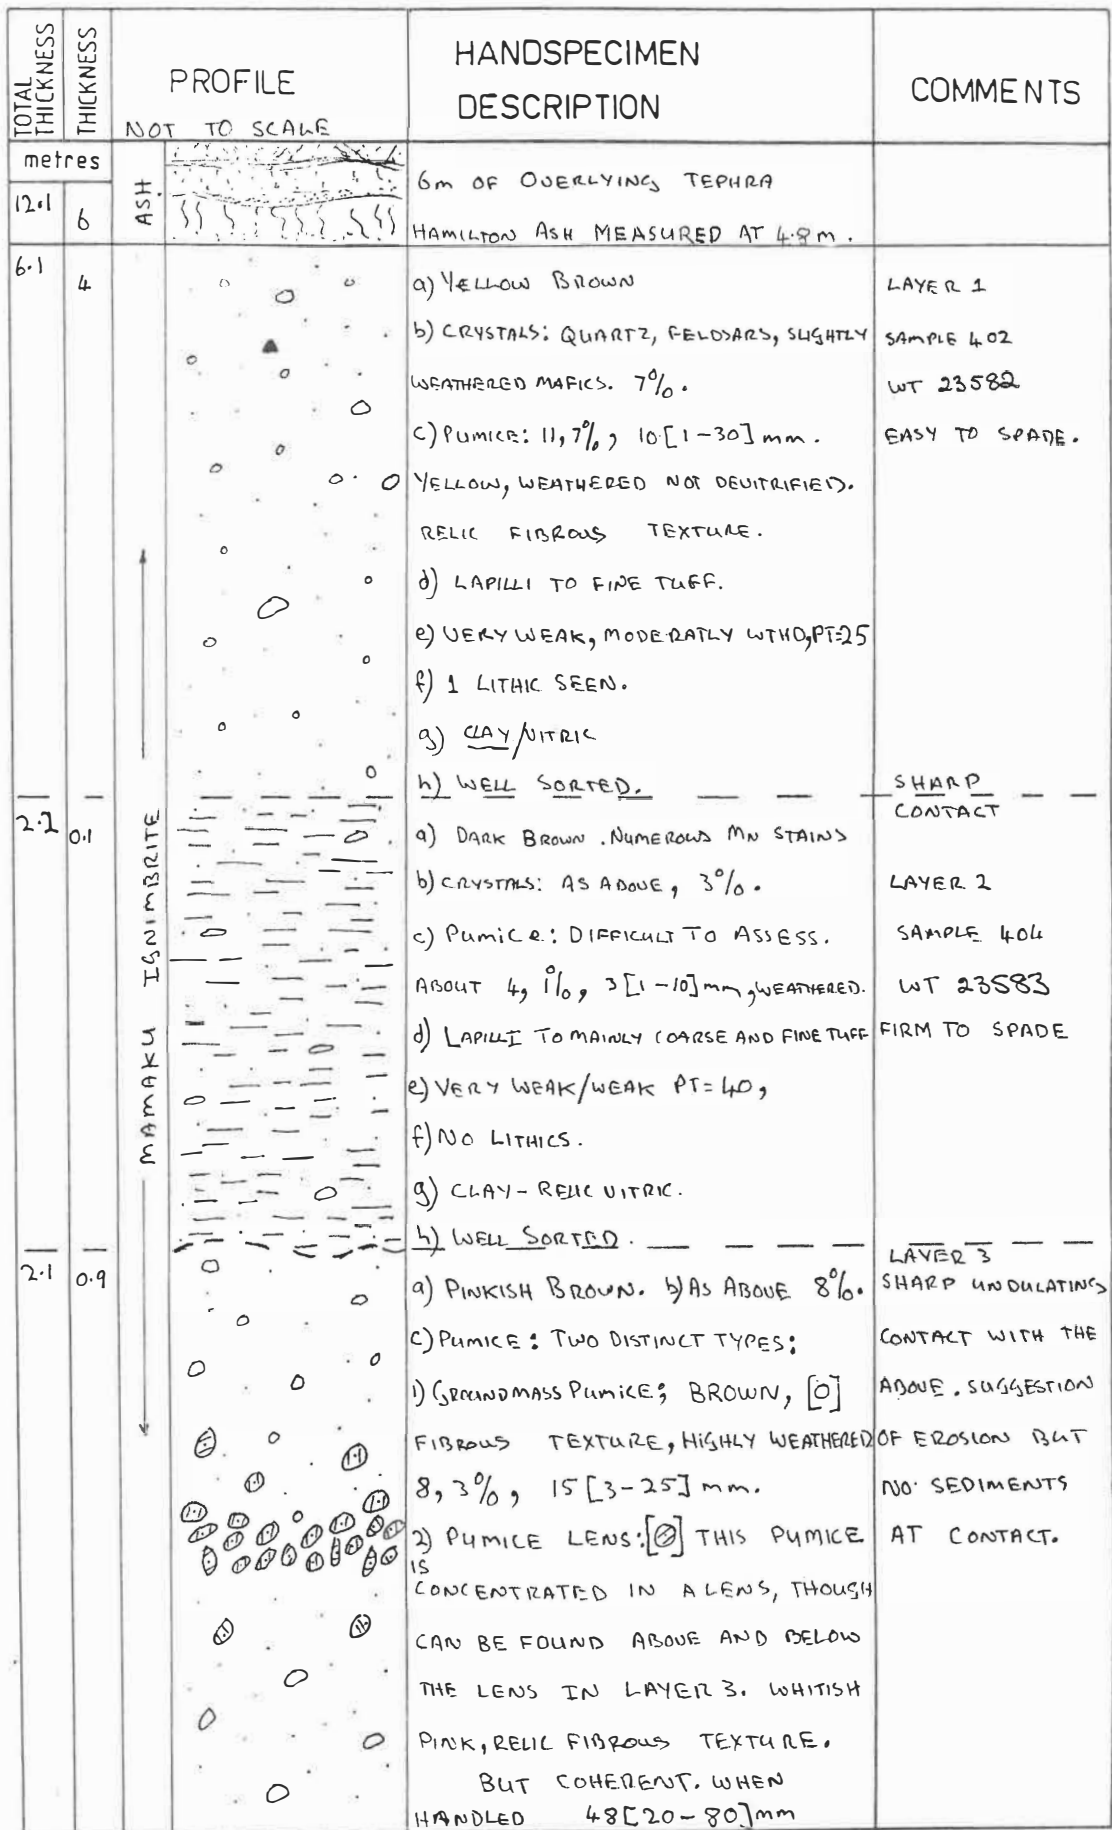 TOTAL THICKNESS
THICKNESS
PROFILE
NOT TO SCALE
HANDSPECIMEN
DESCRIPTION
COMMENTS
metres
12.1
6
ASH.
6m OF OVERLYING TEPHRA
HAMILTON ASH MEASURED AT 4.8m.
6.1
4
MAMAKU IGNIMBRITE
a) YELLOW BROWN
b) CRYSTALS: QUARTZ, FELDSARS, SLIGHTLY
WEATHERED MAFICS. 7%.
c) PUMICE: 11, 7%, 10.[1-30] mm.
YELLOW, WEATHERED NOT DEVITRIFIED.
RELIC FIBROUS TEXTURE.
d) LAPILLI TO FINE TUFF.
e) VERY WEAK, MODERATLY WTHD, PT=25
f) 1 LITHIC SEEN.
g) CLAY/VITRIC
h) WELL SORTED.
LAYER 1
SAMPLE 402
WT 23582
EASY TO SPADE.
SHARP
CONTACT
2.2
0.1
a) DARK BROWN. NUMEROUS MN STAINS
b) CRYSTALS: AS ABOVE, 3%.
c) PUMICE: DIFFICULT TO ASSESS.
ABOUT 4, 1%, 3 [1-10] mm, WEATHERED.
d) LAPILLI TO MAINLY COARSE AND FINE TUFF
e) VERY WEAK/WEAK PT=40,
f) NO LITHICS.
g) CLAY-RELIC VITRIC.
h) WELL SORTED.
LAYER 2
SAMPLE 404
WT 23583
FIRM TO SPADE
2.1
0.9
a) PINKISH BROWN. b) AS ABOVE 8%.
c) PUMICE: TWO DISTINCT TYPES:
1) GROUNDMASS PUMICE; BROWN, [O]
FIBROUS TEXTURE, HIGHLY WEATHERED
8, 3%, 15 [3-25] mm.
2) PUMICE LENS: [] THIS PUMICE
IS
CONCENTRATED IN A LENS, THOUGH
CAN BE FOUND ABOVE AND BELOW
THE LENS IN LAYER 3. WHITISH
PINK, RELIC FIBROUS TEXTURE.
BUT COHERENT. WHEN
HANDLED 48[20-80]mm
LAYER 3
SHARP UNDULATING
CONTACT WITH THE
ABOVE. SUGGESTION
OF EROSION BUT
NO SEDIMENTS
AT CONTACT.